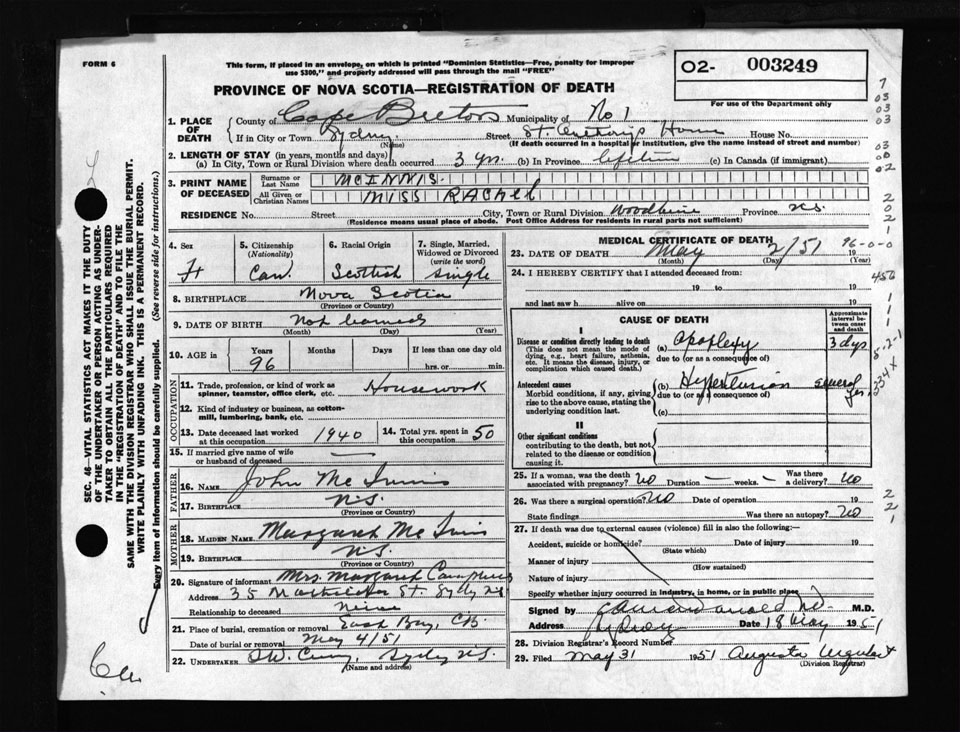 FORM 6
This form, if placed in an envelope, on which is printed "Dominion Statistics—Free, penalty for improper
use $300," and properly addressed will pass through the mail "FREE"
PROVINCE OF NOVA SCOTIA—REGISTRATION OF DEATH
O2- 003249
For use of the Department only
1. PLACE OF DEATH
County of Cape Breton Municipality of No 1
If in City or Town Sydney (Name) Street St. Anthony's Home House No.
(If death occurred in a hospital or institution, give the name instead of street and number)
2. LENGTH OF STAY (in years, months and days)
(a) In City, Town or Rural Division where death occurred 3 yrs. (b) In Province lifetime (c) In Canada (if immigrant)
3. PRINT NAME OF DECEASED
Surname or Last Name McINNIS.
All Given or Christian Names MISS RACHEL
RESIDENCE No. Street City, Town or Rural Division Woodbine Province N.S.
(Residence means usual place of abode. Post Office Address for residents in rural parts not sufficient)
4. Sex F
5. Citizenship (Nationality) Can.
6. Racial Origin Scottish
7. Single, Married, Widowed or Divorced (write the word) Single
8. BIRTHPLACE Nova Scotia
(Province or Country)
9. DATE OF BIRTH Not learned
(Month) (Day) (Year)
10. AGE in Years 96 Months Days If less than one day
hrs. or min.
OCCUPATION
11. Trade, profession, or kind of work as spinner, teamster, office clerk, etc. Housework
12. Kind of industry or business, as cotton-mill, lumbering, bank, etc.
13. Date deceased last worked at this occupation 1940
14. Total yrs. spent in this occupation 50
15. If married give name of wife or husband of deceased —
FATHER
16. NAME John McInnis
17. BIRTHPLACE N.S.
(Province or Country)
MOTHER
18. MAIDEN NAME Margaret McInnis
19. BIRTHPLACE N.S.
(Province or Country)
20. Signature of informant Mrs. Margaret Campbell
Address 35 St. Sydney N.S.
Relationship to deceased Neice
21. Place of burial, cremation or removal East Bay, C.B.
Date of burial or removal May 4/51
22. UNDERTAKER Sydney N.S.
(Name and address)
MEDICAL CERTIFICATE OF DEATH
23. DATE OF DEATH May 2/51 19
(Month) (Day) (Year)
96-0-0
24. I HEREBY CERTIFY that I attended deceased from:
19 to 19
and last saw h alive on 19
CAUSE OF DEATH
Approximate interval between onset and death
I
Disease or condition directly leading to death
(This does not mean the mode of dying, e.g., heart failure, asthenia, etc. It means the disease, injury, or complication which caused death.)
(a) Apoplexy 3 dys
due to (or as a consequence of)
Antecedent causes
Morbid conditions, if any, giving rise to the above cause, stating the underlying condition last.
(b) Hypertension several yrs.
due to (or as a consequence of)
(c)
II
Other significant conditions
contributing to the death, but not related to the disease or condition causing it.
25. If a woman, was the death associated with pregnancy? No Duration — weeks. — Was there a delivery? No
26. Was there a surgical operation? No Date of operation 19
State findings Was there an autopsy? No
27. If death was due to external causes (violence) fill in also the following:—
Accident, suicide or homicide? Date of injury 19
(State which)
Manner of injury
(How sustained)
Nature of injury
Specify whether injury occurred in industry, in home, or in public place
Signed by M.D.
Address Sydney Date 18 May 1951
28. Division Registrar's Record Number
29. Filed May 31 1951 Augusta
(Division Registrar)
SEC. 46—VITAL STATISTICS ACT MAKES IT THE DUTY
OF THE UNDERTAKER OR PERSON ACTING AS UNDER-
TAKER TO OBTAIN ALL THE PARTICULARS REQUIRED
IN THE "REGISTRATION OF DEATH" AND TO FILE THE
SAME WITH THE DIVISION REGISTRAR WHO SHALL ISSUE THE BURIAL PERMIT.
WRITE PLAINLY WITH UNFADING INK. THIS IS A PERMANENT RECORD.
Every item of information should be carefully supplied. (See reverse side for instructions.)
7
03
03
03
03
00
02
2
0
2
1
456
1
1
1
5-2-1
334X
2
2
1